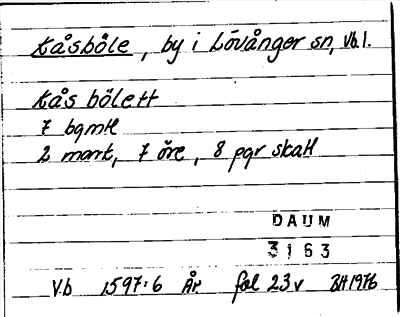 Kåsböle, by i Lövånger sn, Vb.l.
Kås bölett
7 bgmtl
2 mark, 7 öre, 8 pgr skatt
DAUM
3163
V.b 1597:6 År. fol 23v BH1976